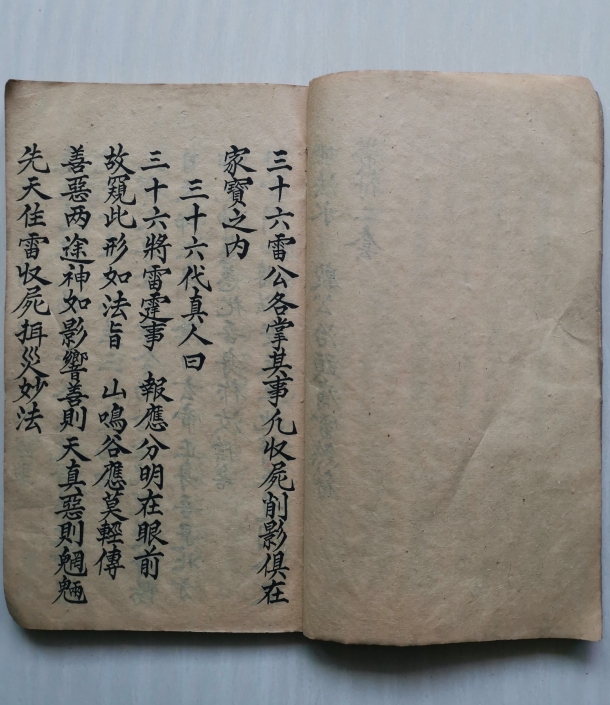 三十六雷公各掌其事凢收屍削影俱在
家寶之内
三十六代真人曰
三十六將雷霆事 報應分明在眼前
故窺此形如法旨 山鳴谷應莫輕傳
善惡两途神如影響善則天真惡則魍魎
先天住雷收屍揖災妙法